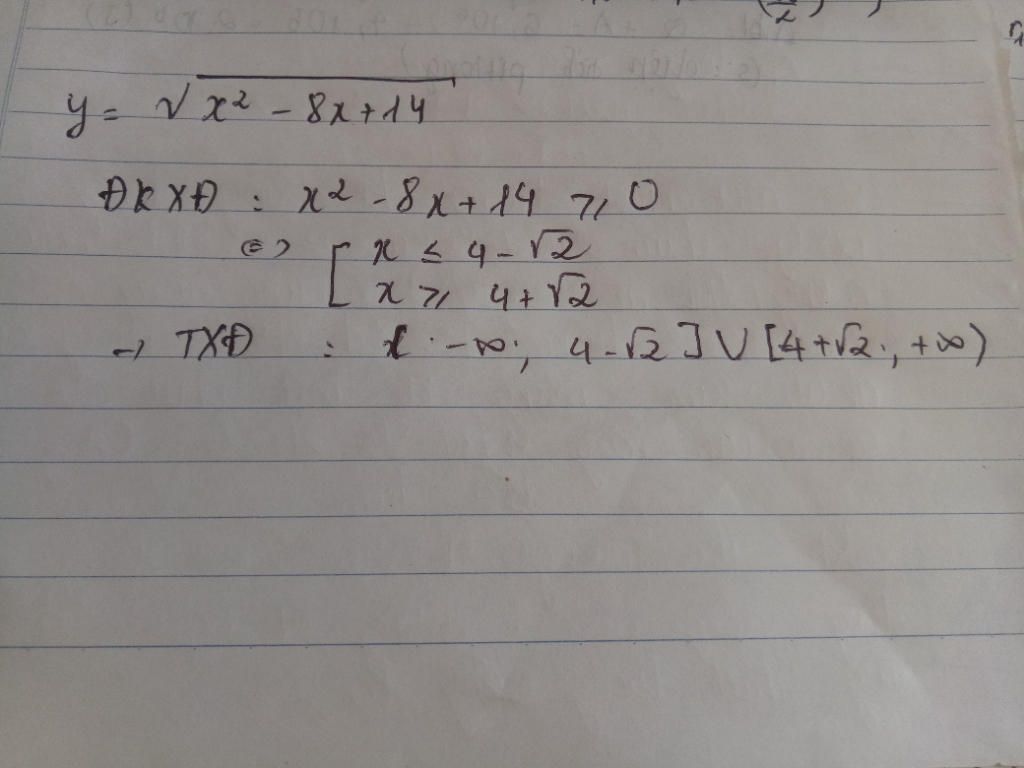 y = √x² - 8x + 14
ĐKXĐ : x² - 8x + 14 ≥ 0
⇔ [ x ≤ 4 - √2
x ≥ 4 + √2
→ TXĐ : ( -∞; 4-√2 ] ∪ [4+√2; +∞)